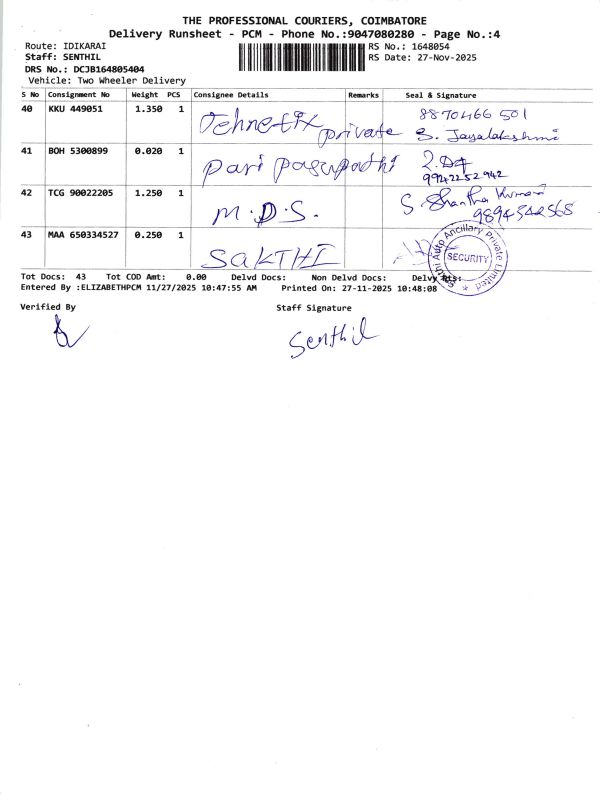 THE PROFESSIONAL COURIERS, COIMBATORE
Delivery Runsheet - PCM - Phone No.:9047080280 - Page No.:4
Route: IDIKARAI RS No.: 1648054
Staff: SENTHIL RS Date: 27-Nov-2025
DRS No.: DCJB164805404
Vehicle: Two Wheeler Delivery
S No Consignment No Weight PCS Consignee Details Remarks Seal & Signature
40 KKU 449051 1.350 1 Tehnetix private 8870466501
S. Jayalakshmi
41 BOH 5300899 0.020 1 Pari pasupathi
9942252942
42 TCG 90022205 1.250 1 M.D.S. S. Shantha Kumari
9894342568
43 MAA 650334527 0.250 1 SAKTHI
Sakthi Auto Ancillary Private Limited
SECURITY
Tot Docs: 43 Tot COD Amt: 0.00 Delvd Docs: Non Delvd Docs: Delvy
Entered By :ELIZABETHPCM 11/27/2025 10:47:55 AM Printed On: 27-11-2025 10:48:08
Verified By Staff Signature
Senthil